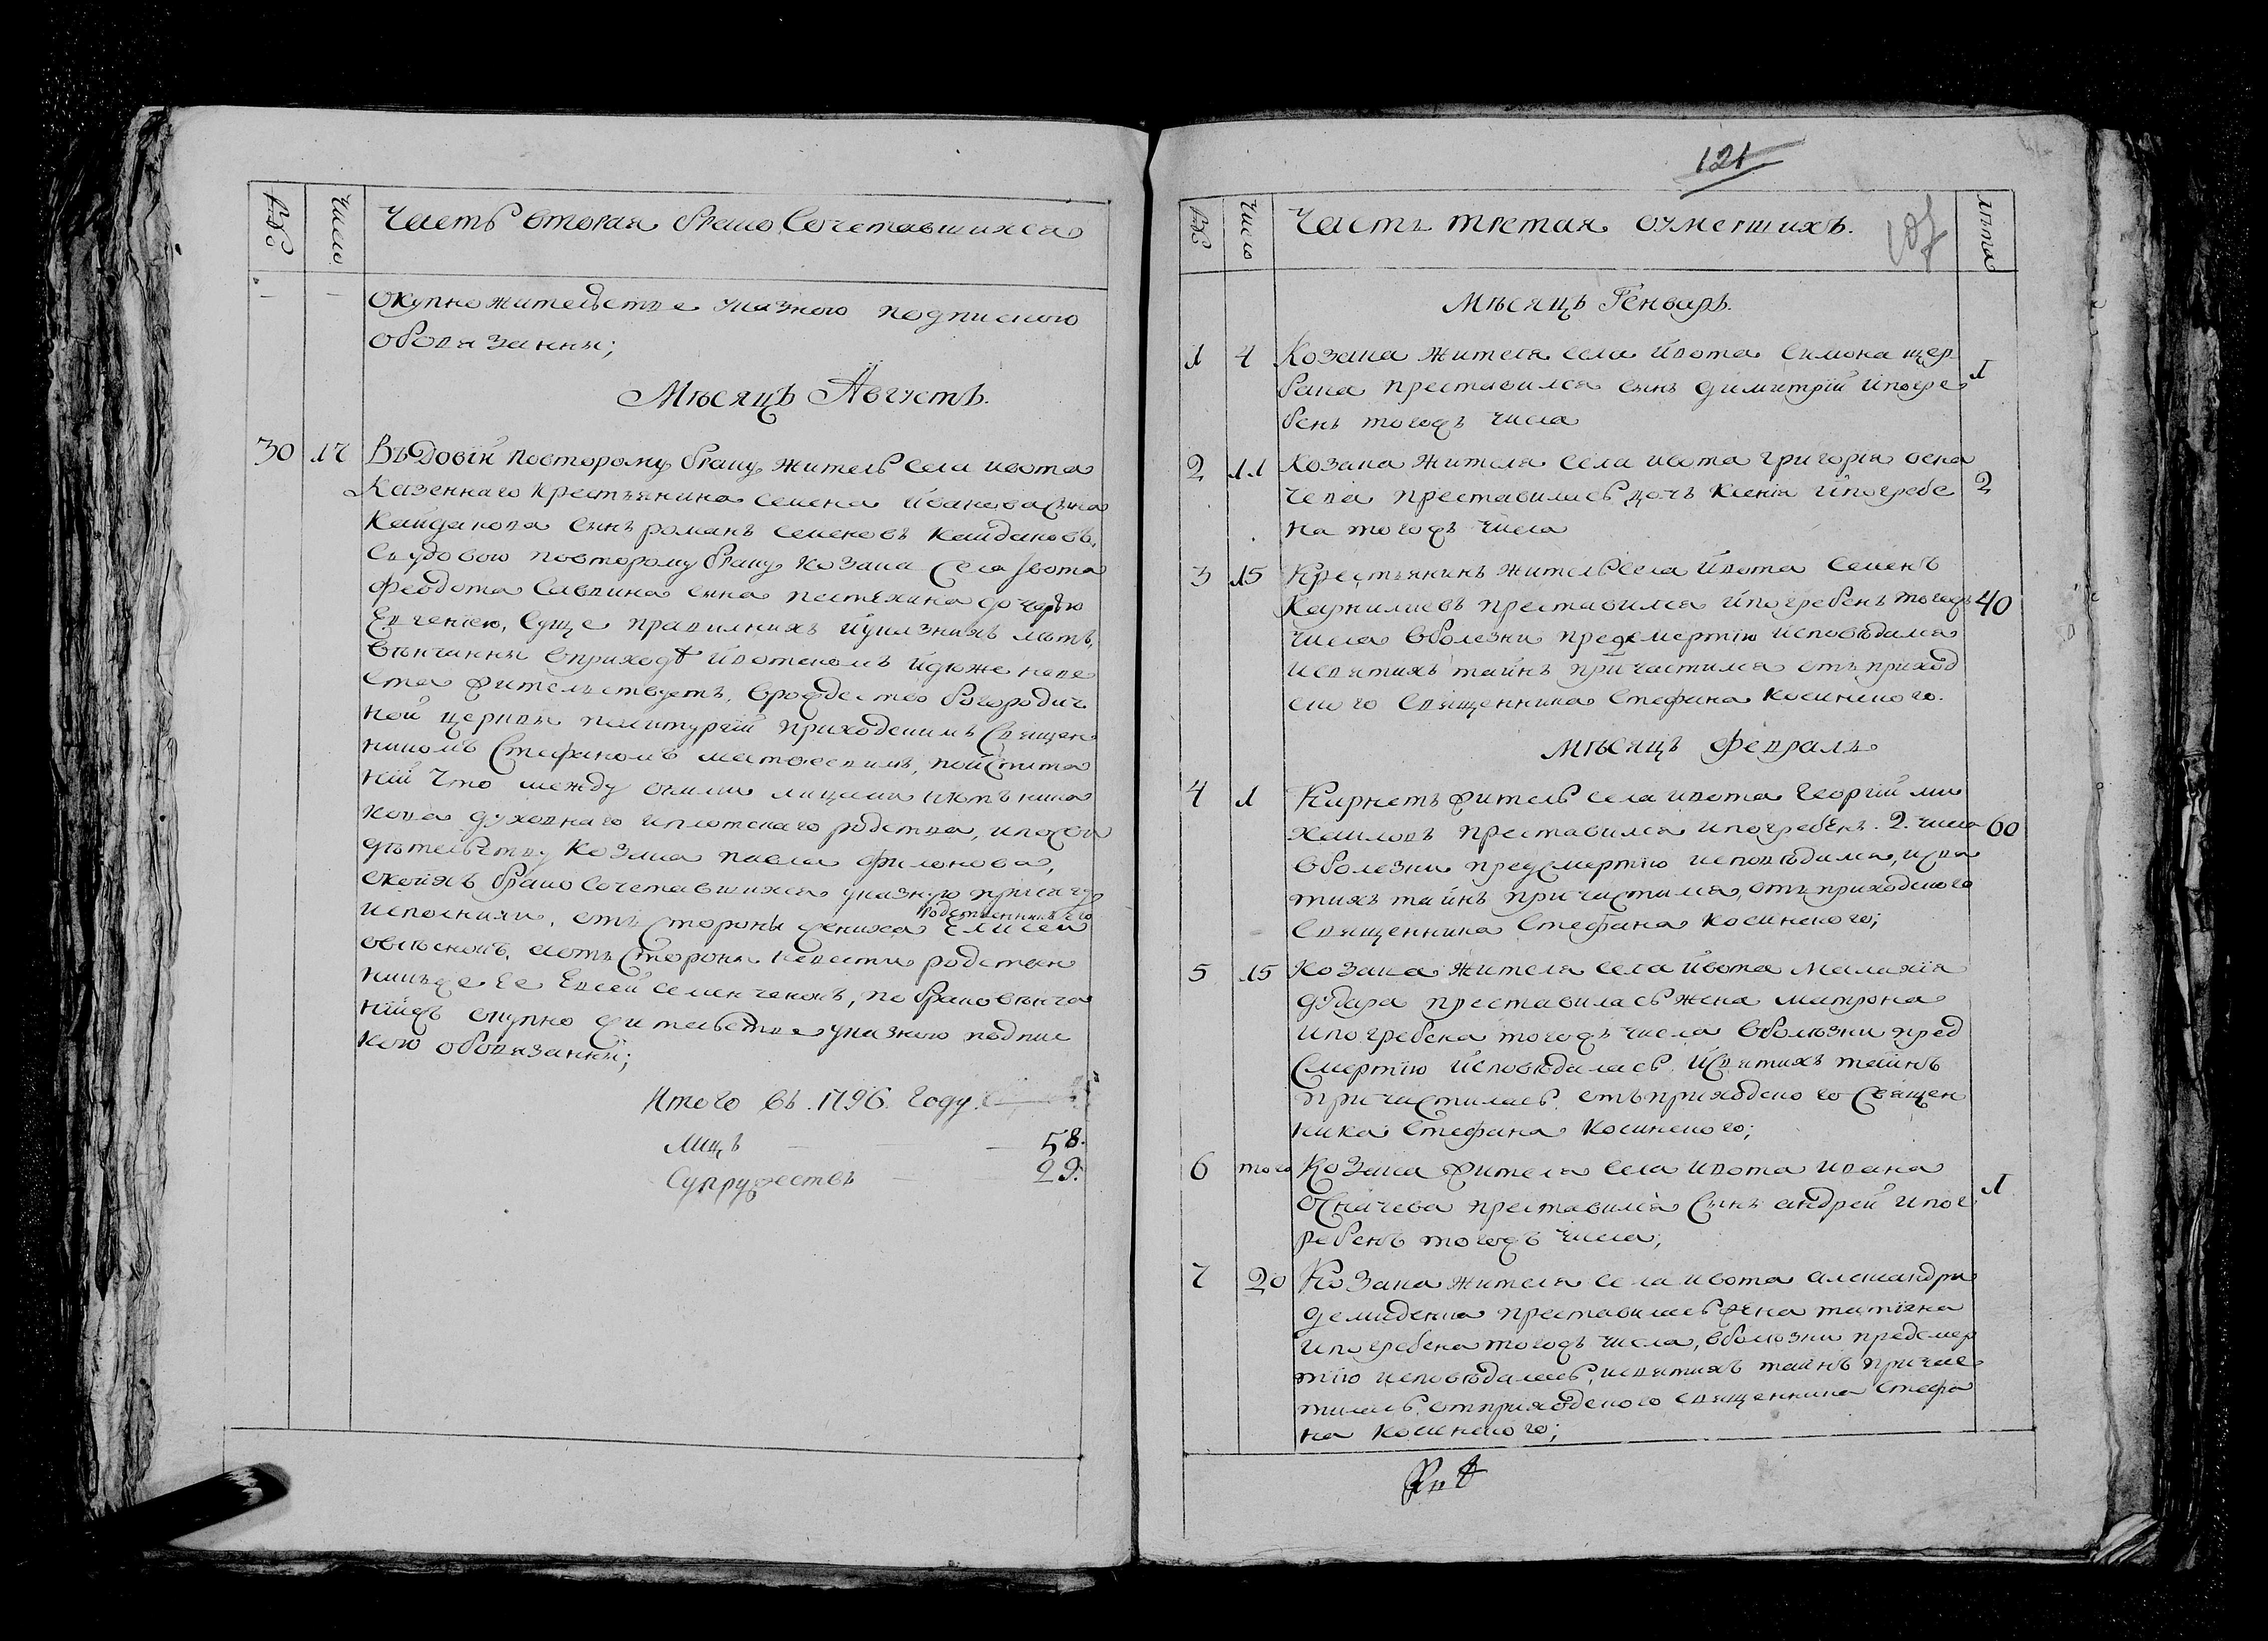 Число
Часть вторая брако Сочетавшихся
окупножителстве указного подпискою
обовязанны;
Мѣсяцъ Августъ.
30 17 Въдовій повторому браку житель села ивота
Казеннаго крестьянина семена йванова сына
Кайданова сынъ романъ семеновъ кайдановъ,
Съ удовою повторому браку козака села ивота
феодота савина сына дочерю
Евгениею, суще правилнихъ иуказнихъ летъ,
вѣнчанны вприходѣ ивотскомъ идѣже неве
ста жителствуетъ, врождество богородич
ной церкви политургій приходскимъ священ
никомъ Стефаномъ поиспита
ній что между оними лицами нѣтъ ника
кова духовнаго иплотскаго родства, ипосви
дѣтельству козака павла филонова,
скоихъ брако сочетавшихся указную присягу
исполнили, отъ стороны жениха родственникъ его Елисей
аотъ стороны невести родствен
никъже ее Евсей семенченокъ, побраковѣнча
ніижъ окупно жительстве указною подпис
кою обовязанны;
Итого въ 1796. году.
лицъ — 58.
Супружествъ — 29.
121
107
Число
Часть третая оумершихъ.
лѣта
Мѣсяцъ Генварь.
1 4 Козака жителя села ивота Симона щер
бака преставился сынъ димитрій ипогре 1
бенъ тогожъ числа
2 11 Козака жителя села ивота григорія осна
чева преставилась дочь ксенія ипогребе 2
на тогожъ числа
3 15 Крестьянинъ житель села ивота семенъ
Карнилиевъ преставился ипогребенъ тогожъ 40
числа вболезни предсмертію исповѣдался
исвятихъ тайнъ причастился отъ приход
ского священника Стефана косинского.
Мѣсяцъ февраль
4 1 житель села ивота георгій ми
хаиловъ преставился ипогребенъ. 2. числа 60
вболезни предсмертію исповѣдался, исвя
тихъ тайнъ причастился, отъ приходского
священника Стефана косинского;
5 15 Козака жителя села ивота малахія
дудара преставилась жена матрона
ипогребена тогожъ числа вболѣзни пред
смертію исповѣдалась исвятихъ тайнъ
причастилась отъприходского священ
ника Стефана косинского;
6 того Козака жителя села ивота ивана
Осначева преставился сынъ андрей ипог 1
ребенъ тогожъ числа;
7 20 Козака жителя села ивота александра
демиденка преставилась жена татіяна
ипогребена тогожъ числа, вболѣзни предсмер
тію исповѣдалась, исвятихъ тайнъ причас
тилась отприходского священника Стефа
на косинского;